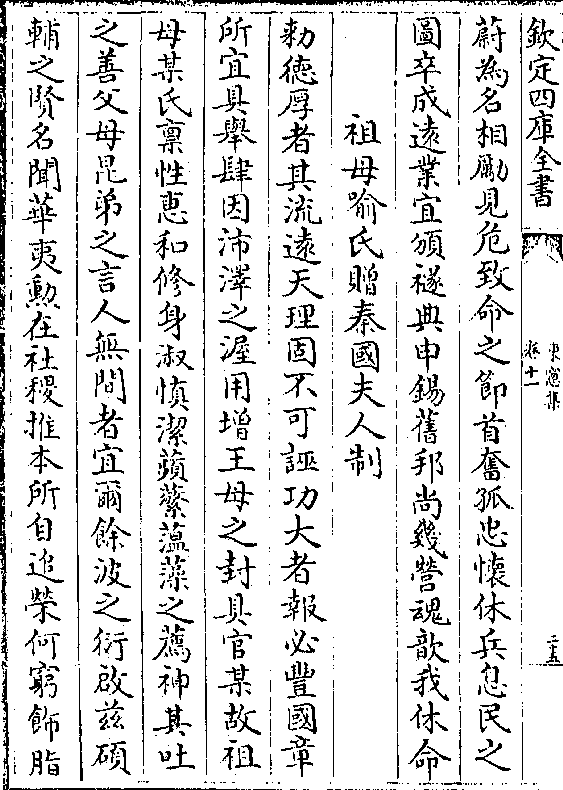 欽定四庫全書
東窻集
卷十一
二十五
蔚為名相勵見危致命之節首奮孤忠懷休兵息民之
圖卒成遠業宜頒襚典申錫舊邦尚幾營魂歆我休命
祖母喻氏贈秦國夫人制
勑徳厚者其流遠天理固不可誣功大者報必豐國章
所宜具舉肆因沛澤之渥用增王母之封具官某故祖
母某氏禀性惠和修身淑慎潔蘋蘩薀藻之薦神其吐
之善父母昆弟之言人無間者宜爾餘波之衍啟兹碩
輔之賢名聞華夷勲在社稷推本所自追榮何窮飾脂